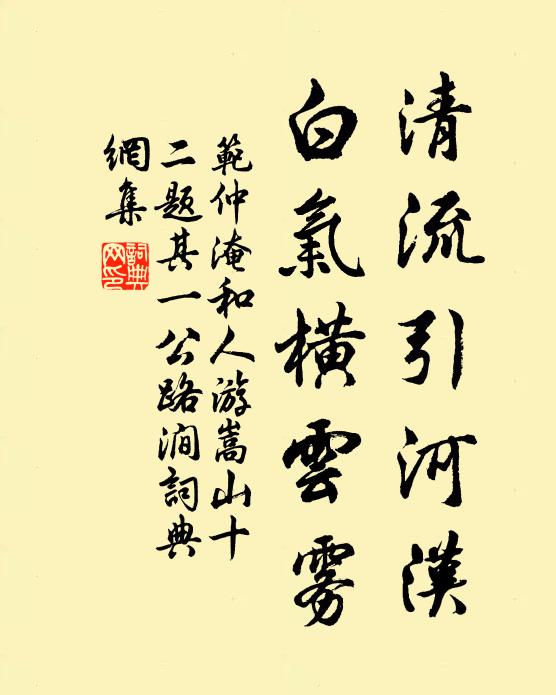 清流引河漢
白氣橫雲霧
範仲淹和人游嵩山十
二題其一公路澗詞典
網集
詞典
网印